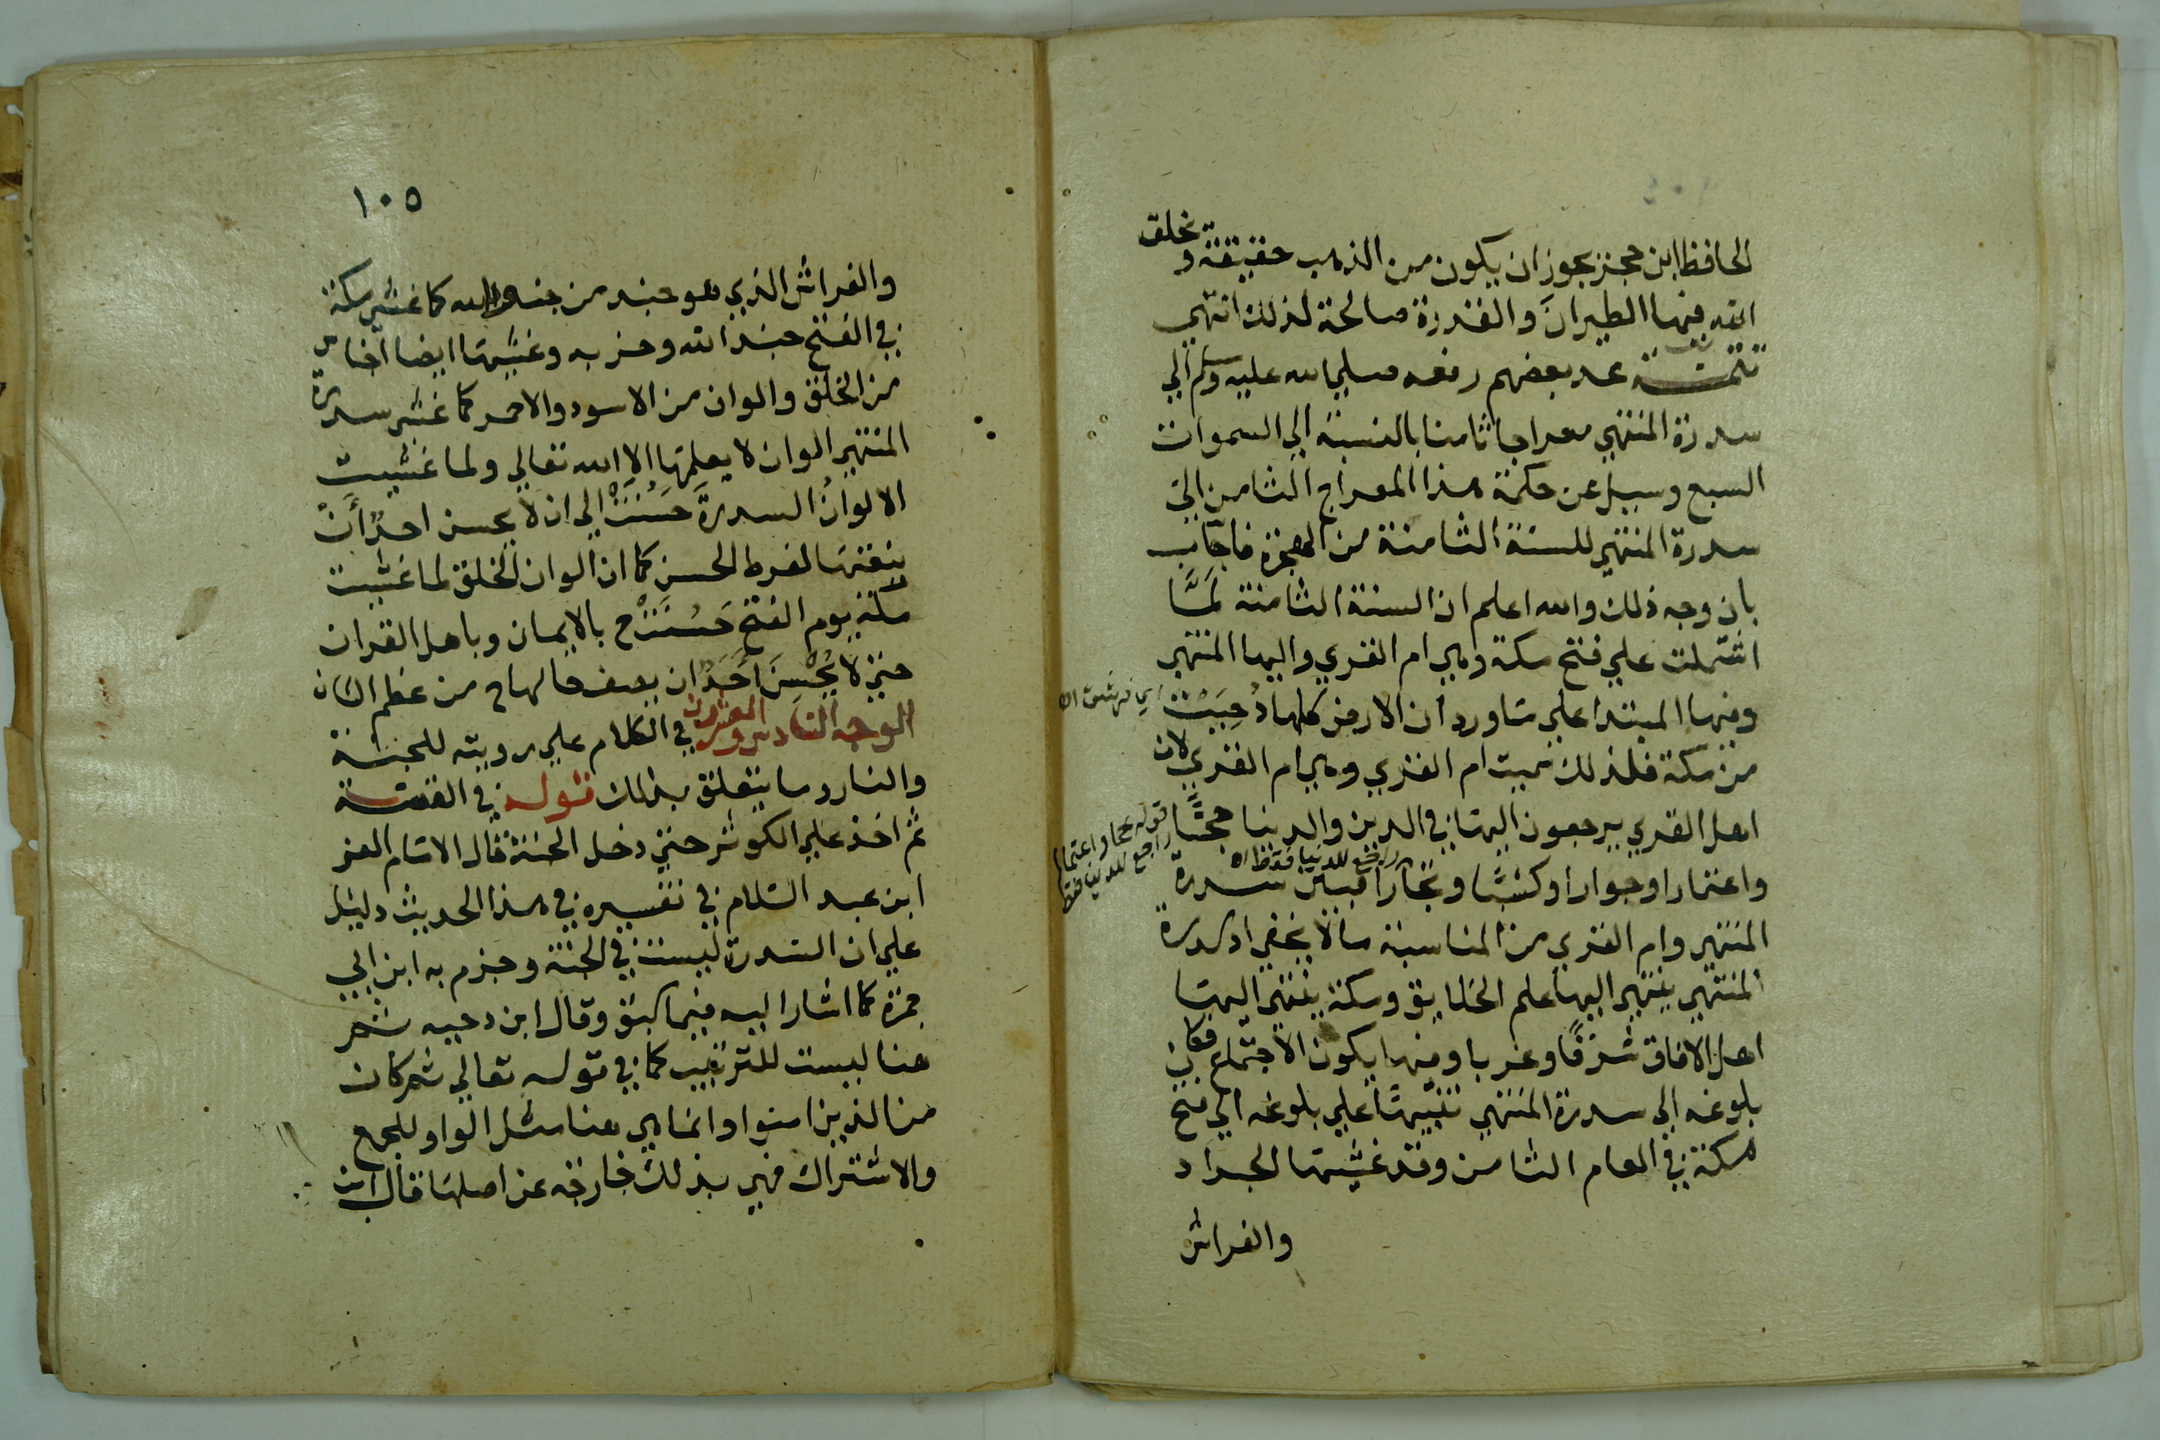 الحافظ ابن حجز يجوز ان يكون من الذهب حقيقة ويخلق
الله فيها الطيرانَ والقدرة صالحة لذلك انتهي
تتمـــة عد بعضهم رفعه صلي الله عليه وسلم الي
سدرة المنتهي معراجا ثامنا بالنسبة الي السموات
السبع وسيل عن حكمة هذا المعراج الثامن الي
سدرة المنتهي للسنة الثامنة من الهجرة فاجاب
بان وجه ذلك والله اعلم ان السنة الثامنة لمَّا
اشتملت علي فتح مكة وهي ام القري واليها المنتهي
ومنها المبتدا علي ما ورد ان الارض كلها دُحِيَتْ
من مكة فلذلك سميت ام القري وهي ام القري لان
اهل القري يرجعون اليها في الدين والدنيا حجًّا
واعتمارا وجوارا وكسبًا وتجارًا فبين سدرة
راجع للدنيا فقط اه
قوله حجا واعتمارا
راجع للدين فقط
المنتهي وام القري من المناسبة ما لا يخفي اذ سدرة
المنتهي ينتهي اليها علم الخلايق ومكة ينتهي اليها
اهل الافاق شرقًا وغربا ومنها يكون الاجتماع فكان
بلوغه الي سدرة المنتهي تنبيهًا علي بلوغه الي فتح
مكة في العام الثامن وقد غشيها الجراد
والفراش
١٠٥
والفراش الذي هو جند من جنود الله كما غشي مكة
في الفتح جند الله وحزبه وغشيها ايضا اجناس
من الخلق والوان من الاسود والاحمر كما غشي سدرة
المنتهي الوان لا يعلمها الا الله تعالي ولما غشيت
الالوانُ السدرةَ حَسُنَتْ الي ان لا يحسن احدٌ أنْ
ينعتها لفرط الحسن كما ان الوان الخلق لما غشيت
مكة يوم الفتح حَسُنَتْ ح بالايمان وباهل القران
حتي لا يُحْسِنَ اَحَدٌ ان يصف حالها ح من عظم الشان
الوجه السادس والعشرون في الكلام علي رويته للجنة
والنار وما يتعلق بذلك قوله في القصة
ثم اخذ علي الكوثر حتي دخل الجنة قال الامام العز
ابن عبد السلام في تفسيره في هذا الحديث دليل
علي ان السدرة ليست في الجنة وجزم به ابن ابي
جمرة كما اشار اليه فيما سبق وقال ابن دحيه ثم
هنا ليست للترتيب كما في قوله تعالي ثم كان
من الذين امنوا وانما هي هنا مثل الواو للجمع
والاشتراك فهي بذلك خارجة عن اصلها قال ابن